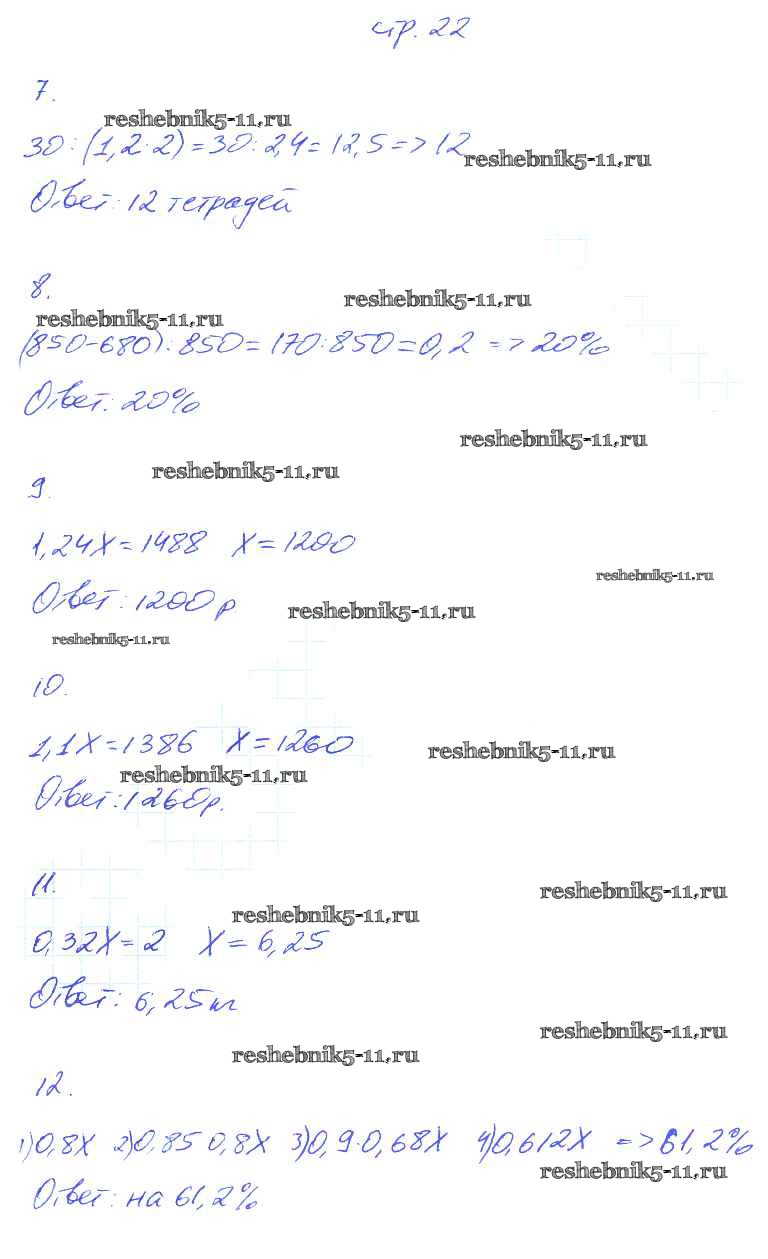 стр. 22
7.
reshebnik5-11.ru
30:(1,2·2)=30:2,4=12,5=>12
reshebnik5-11.ru
Ответ: 12 тетрадей
8.
reshebnik5-11.ru
reshebnik5-11.ru
(850-680):850=170:850=0,2 => 20%
Ответ: 20%
reshebnik5-11.ru
reshebnik5-11.ru
9.
1,24X=1488 X=1200
reshebnik5-11.ru
Ответ: 1200р
reshebnik5-11.ru
reshebnik5-11.ru
10.
1,1X=1386 X=1260
reshebnik5-11.ru
reshebnik5-11.ru
Ответ: 1260р.
11.
reshebnik5-11.ru
reshebnik5-11.ru
0,32X=2 X=6,25
Ответ: 6,25кг
reshebnik5-11.ru
reshebnik5-11.ru
12.
1)0,8X 2)0,85 0,8X 3)0,9·0,68X 4)0,612X => 61,2%
reshebnik5-11.ru
Ответ: на 61,2%